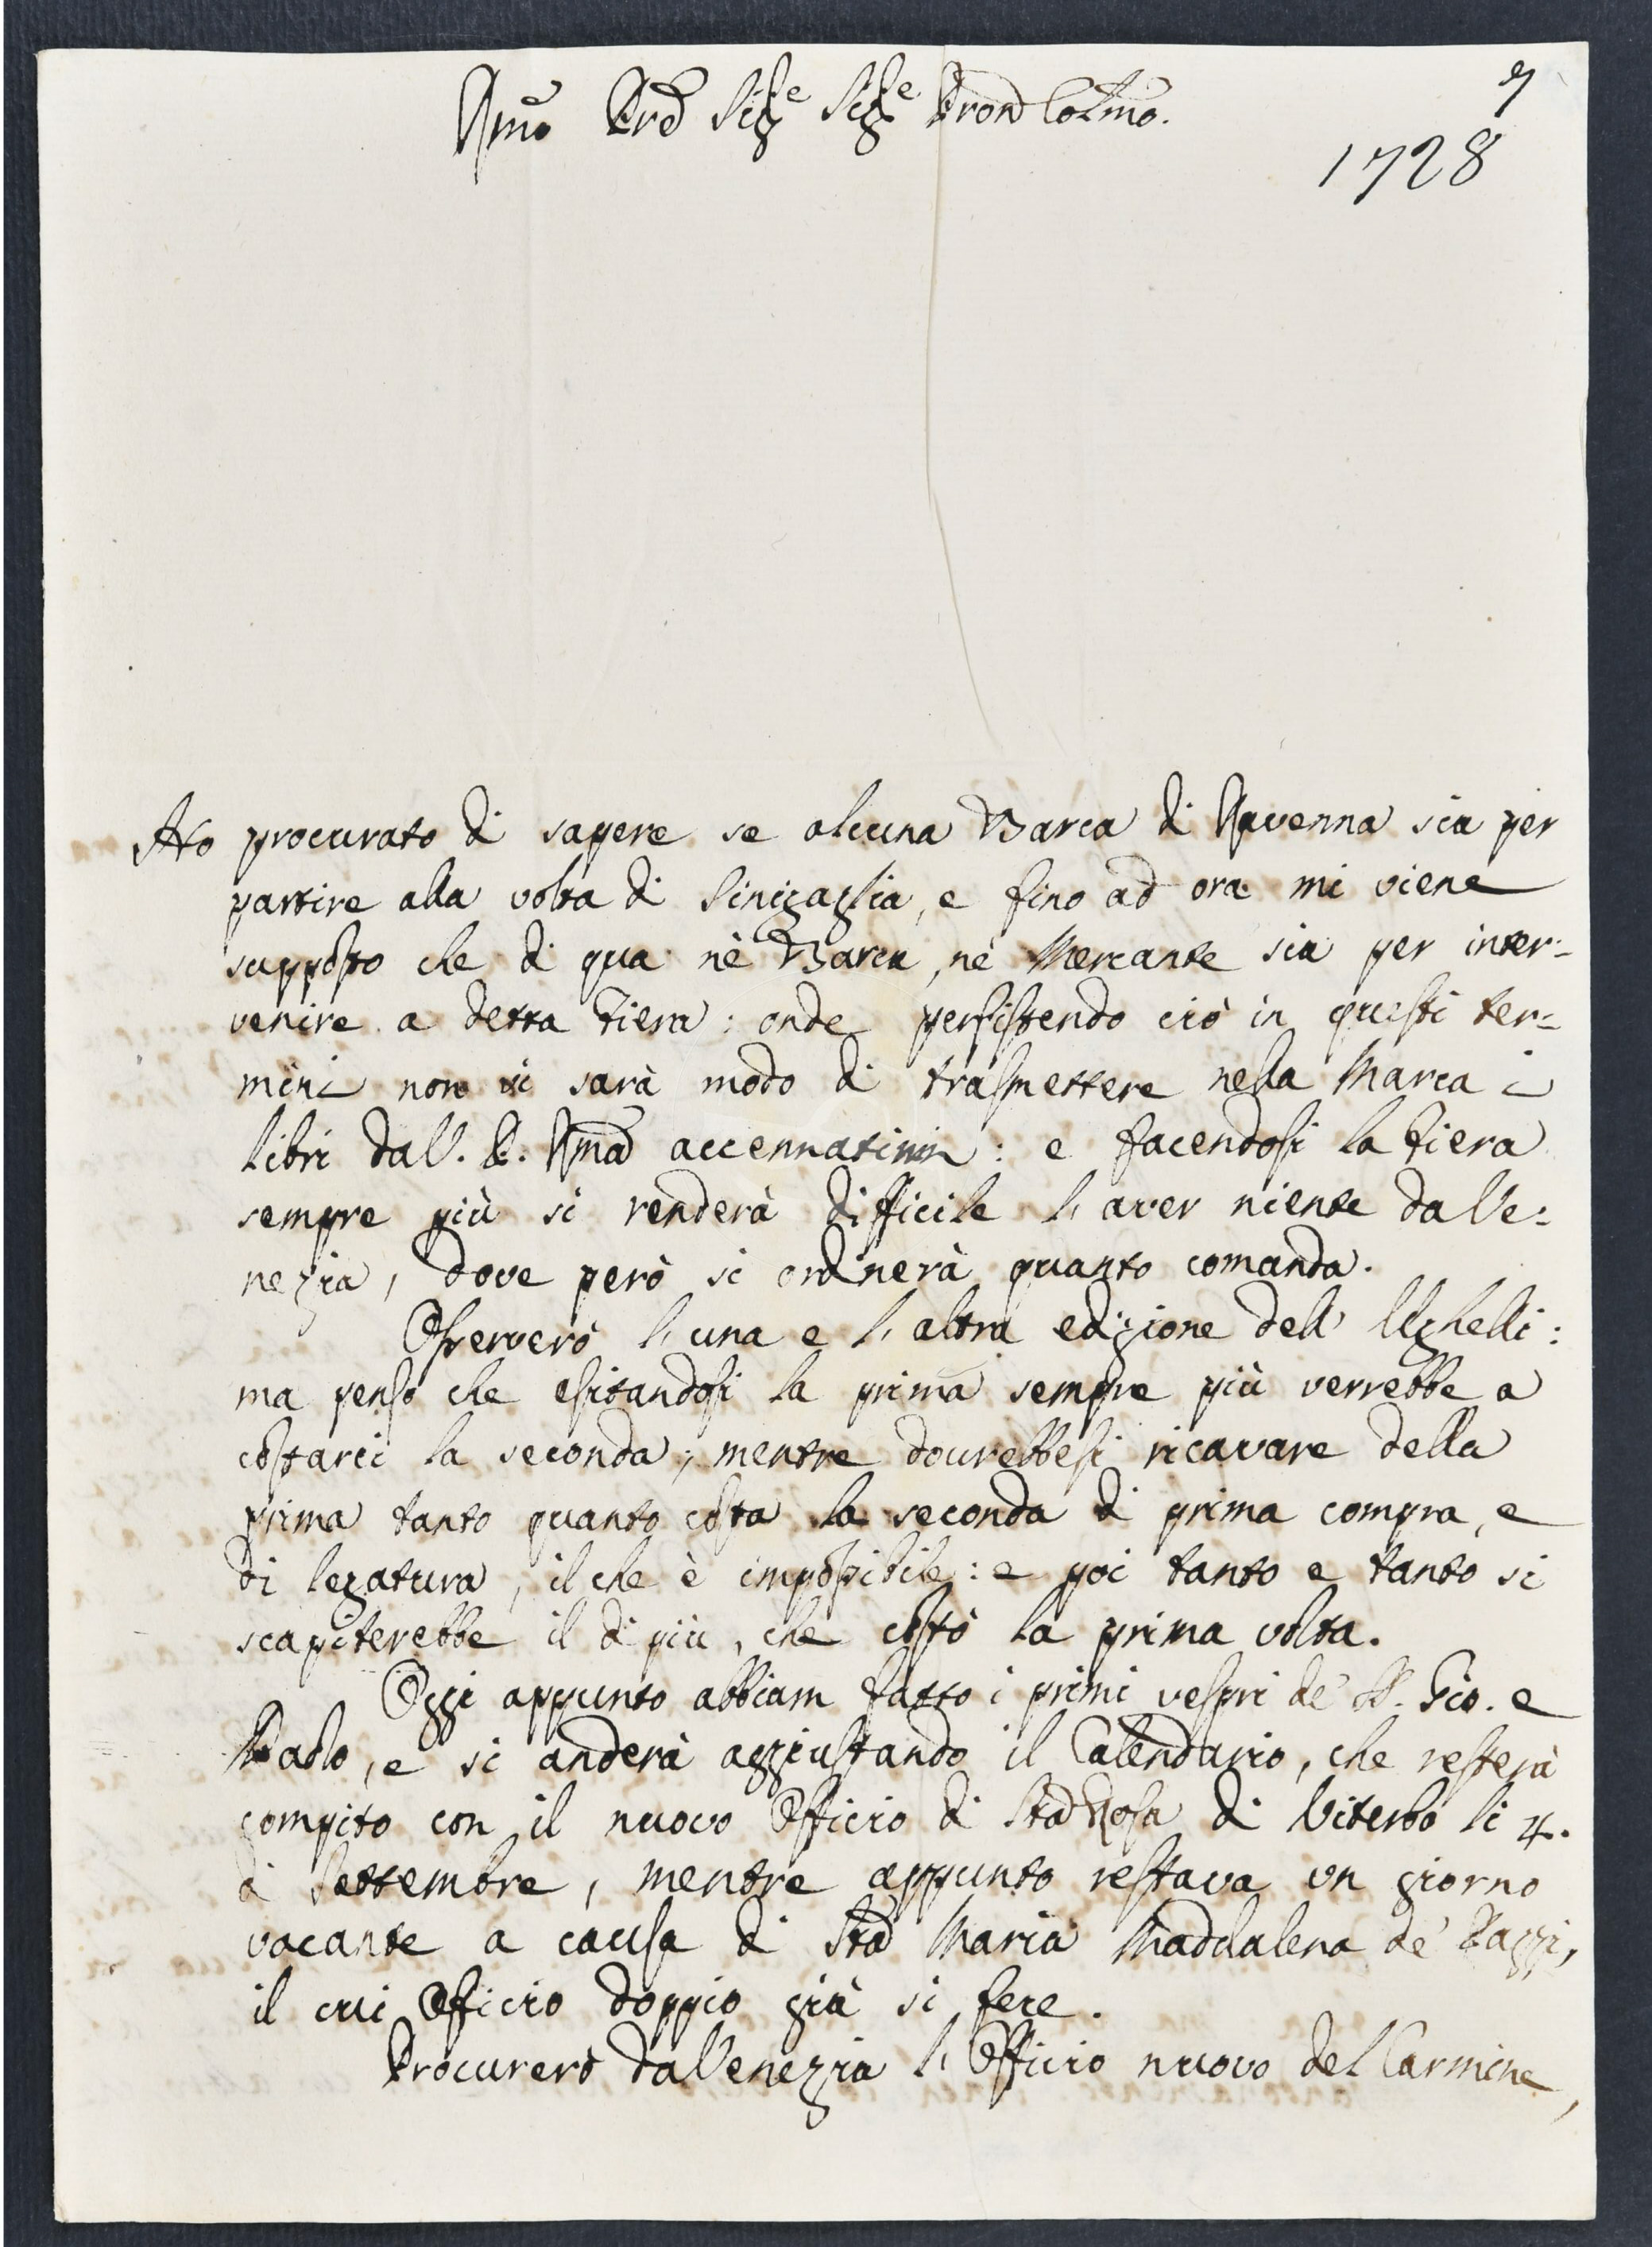 Rmo Prõ Sigre Sigre Pron Colmo.
7
1728
Ho procurato di sapere se alcuna Barca di Ravenna sia per
partire alla volta di Sinigaglia, e fino ad ora mi viene
supposto che di qua nè Barca, nè Mercante sia per inter=
venire a detta Fiera: onde persistendo ciò in questi ter=
mini non vi sarà modo di trasmettere nella Marca i
libri da V. P. Rma accennatimi: e facendosi la Fiera
sempre più si renderà difficile l'aver niente da Ve=
nezia, dove però si ordinerà quanto comanda.
Osserverò l'una e l'altra edizione dell'Ughelli:
ma penso che esitandosi la prima sempre più verrebbe a
costarci la seconda; mentre dovrebbesi ricavare della
prima tanto quanto costa la seconda di prima compra, e
di legatura, il che è impossibile: e poi tanto e tanto si
scapiterebbe il di più, che costò la prima volta.
Oggi appunto abbiam fatto i primi vespri de' SS. Gio. e
Paolo, e si anderà aggiustando il Calendario, che resterà
compito con il nuovo Officio di Sta Rosa di Viterbo li 4.
di Settembre, mentre appunto restava un giorno
vacante a causa di Sta Maria Maddalena de' Pazzi,
il cui Officio doppio già si fece.
Procurerò da Venezia l'Officio nuovo del Carmine,